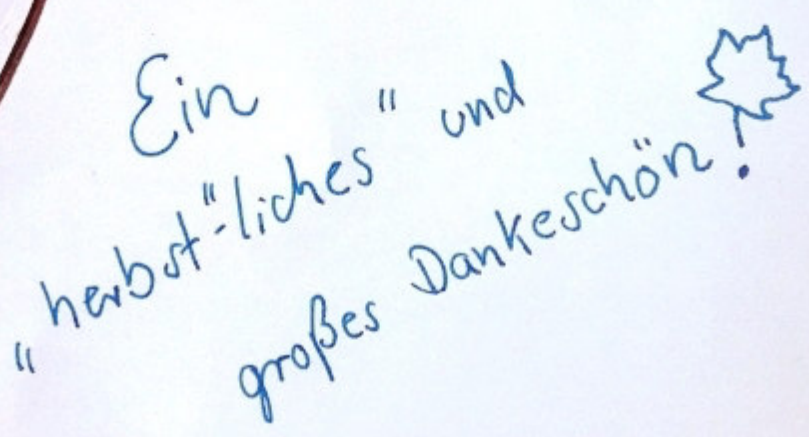 Ein
„herbst"-liches" und
großes Dankeschön!